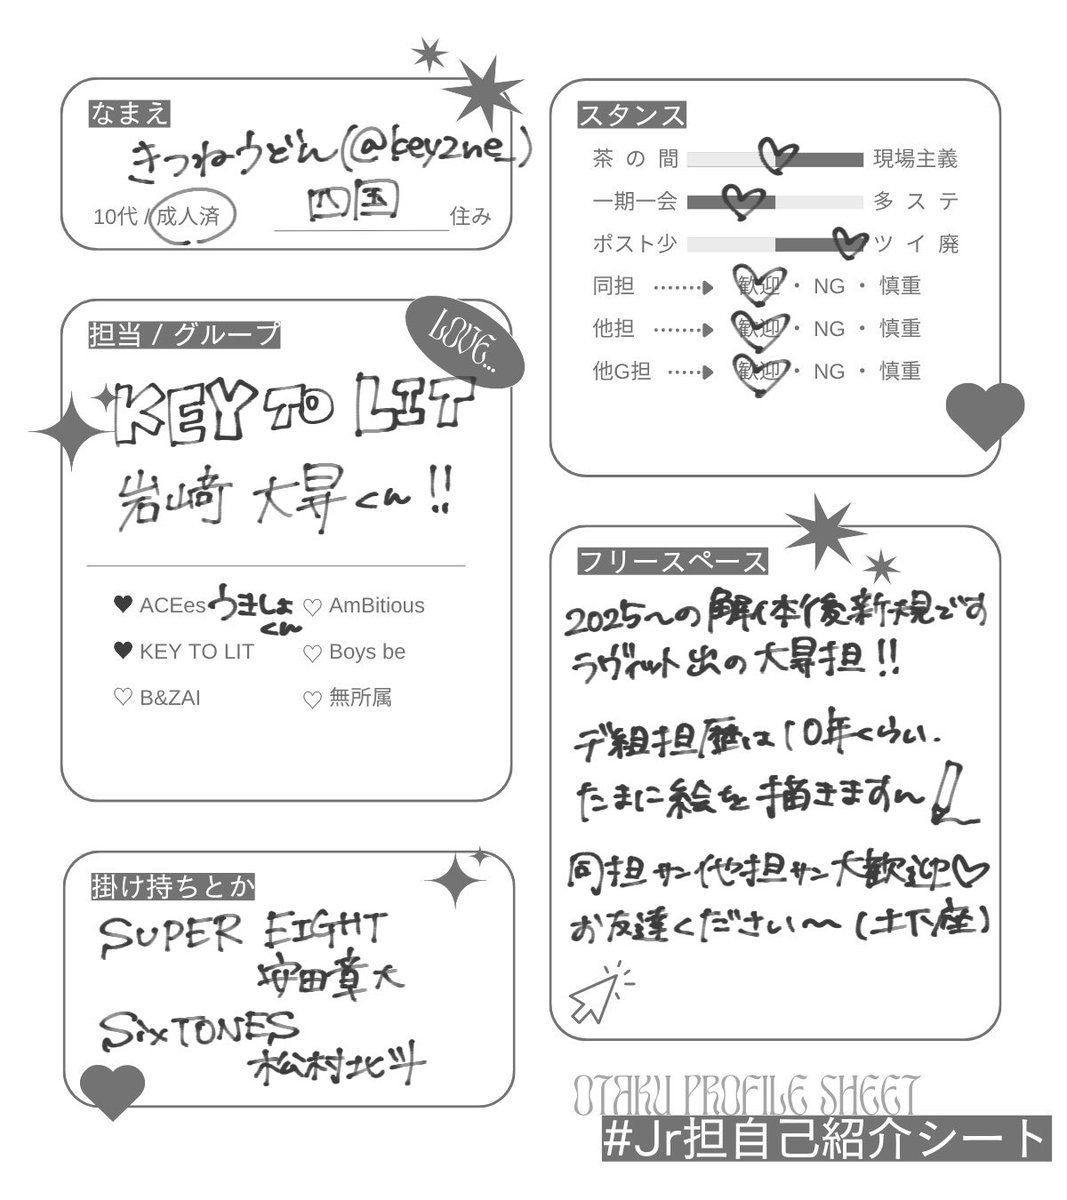 なまえ
きつねうどん(@key2ne_)
10代 / 成人済
四国
住み
担当 / グループ
LOVE...
KEY TO LIT
岩﨑 大昇くん!!
♥ ACEes うきしょくん ♡ AmBitious
♥ KEY TO LIT ♡ Boys be
♡ B&ZAI ♡ 無所属
掛け持ちとか
SUPER EIGHT
安田章大
SixTONES
松村北斗
スタンス
茶の間 現場主義
一期一会 多ステ
ポスト少 ツイ廃
同担 歓迎・NG・慎重
他担 歓迎・NG・慎重
他G担 歓迎・NG・慎重
フリースペース
2025〜の解体後新規です
ラヴィット出の大昇担!!
デ組担歴は10年くらい.
たまに絵を描きます〜
同担サン他担サン大歓迎♡
お友達ください〜(土下座)
OTAKU PROFILE SHEET
#Jr担自己紹介シート